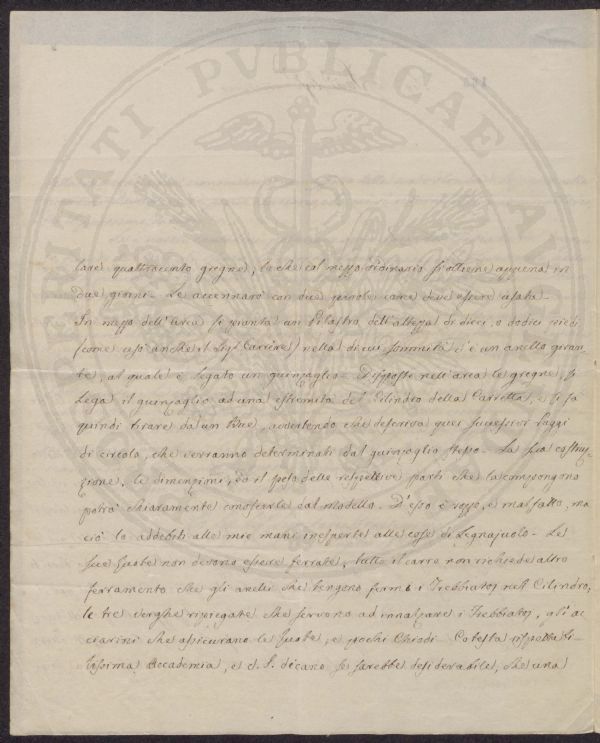 PVBLICAE
lare quattrocento gregne, lo che col mezzo ordinario s'ottiene appena in
due giorni - Le accennarò con due parole come deve essere usata -
In mezzo dell'area si pianta un Pilastro dell'altezza di dieci, o dodici piedi
(come usò anche il Sig.r Carrère) nella di cui sommità v'è un anello giran-
te, al quale è legato un guinzaglio - Disposte nell'area le gregne, si
Lega il guinzaglio ad una estremità del Cilindro della Carretta, e si fa
quindi tirare da un Bue, avvertendo che descriva quei successivi raggi
di circolo, che verranno determinati dal guinzaglio stesso - La sua costru-
zione, le dimenzioni, ed il peso delle respettive parti che la compongono
potrà chiaramente conoscerle dal modello. D'esso è rozzo, e mal fatto, ma
ciò lo addebiti alle mie mani inesperte alle cose di Legnajuolo - Le
sue Ruote non devono essere ferrate, tutto il carro non richiede altro
ferramento che gli anelli che tengono fermi i Trebbiatoj nel Cilindro,
le tre verghe ripiegate che servono ad innalzare i Trebbiatoj, gli ac
ciarini che assicurano le Ruote, e pochi Chiodi - Cotesta rispetta-
tissima Accademia, e dicano se sarebbe desiderabile, che una